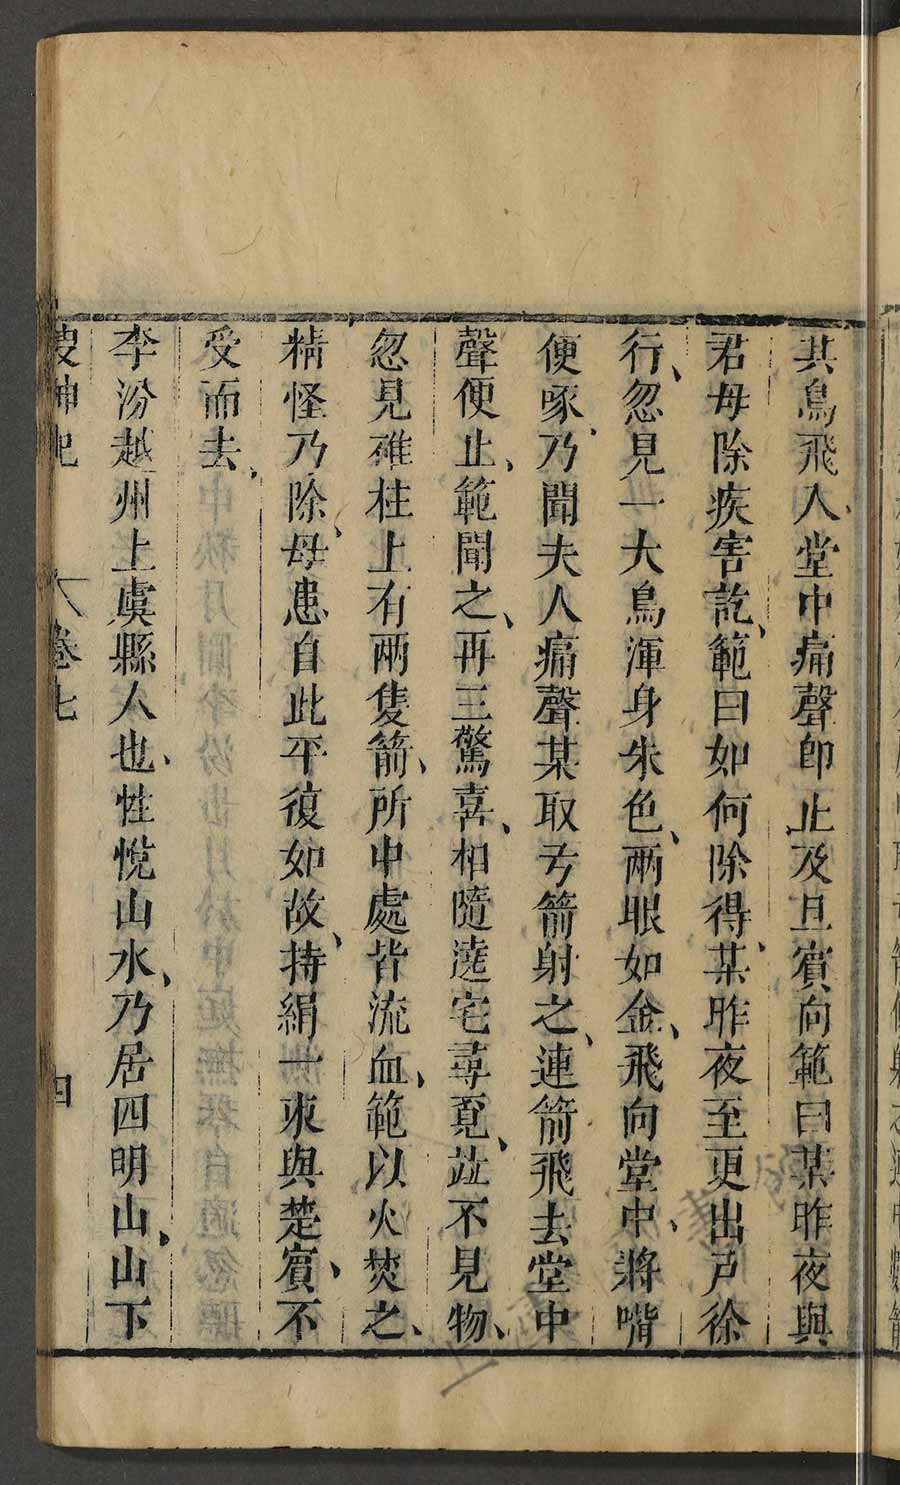 其鳥飛入堂中痛聲即止及旦賓向範曰某昨夜與
君母除疾害訖、範曰如何除得、某昨夜至更出戸徐
行、忽見一大鳥渾身朱色、兩眼如金、飛向堂中、將嘴
便啄、乃聞夫人痛聲某取弓箭射之、連箭飛去堂中
聲便止、範聞之、再三驚喜、相隨遶宅尋覔、並不見物、
忽見碓柱上有兩隻箭、所中處皆流血、範以火焚之、
精怪乃除、母患自此平復如故、持絹一束與楚賓、不
受而去、
李汾越州上虞縣人也、性悅山水、乃居四明山、山下
搜神記 卷七 四